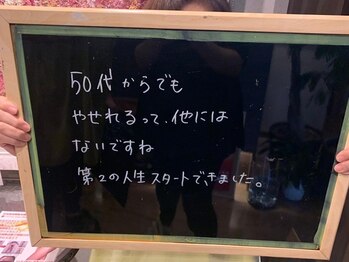 50代からでも
やせれるって、他には
ないですね
第2の人生スタートできました。